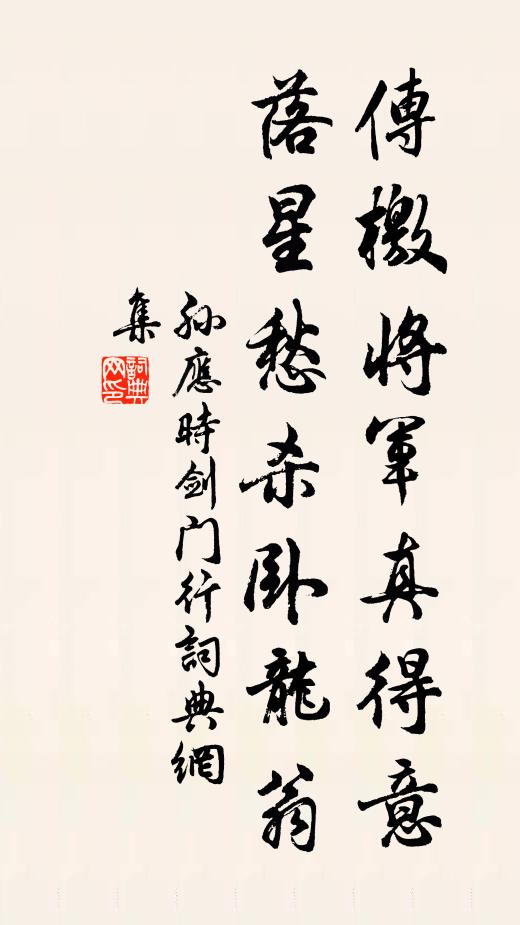 傳檄將軍真得意
落星愁杀卧龍翁
孙應時剑门行詞典網
集
詞典网印